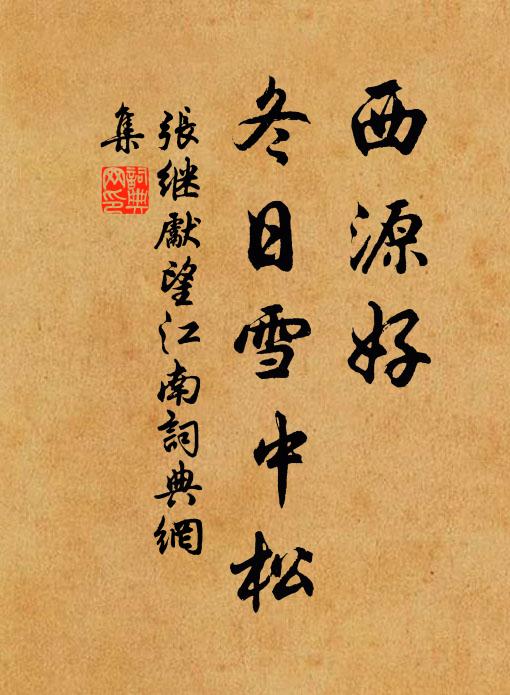 西源好
冬日雪中松
張继獻望江南詞典網
集
詞典网印